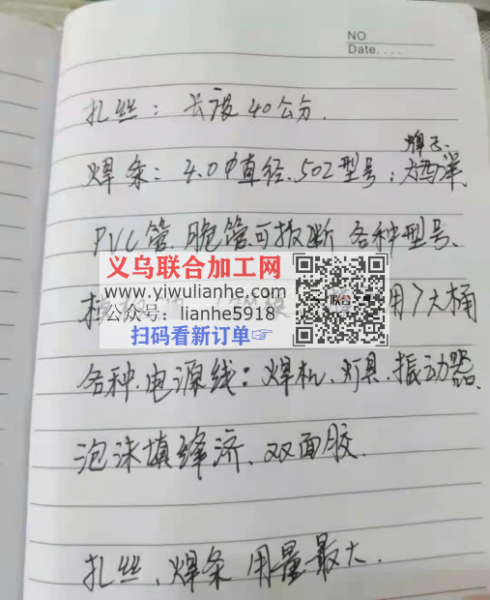 NO
Date....
扎丝：长度40公分.
牌子.
焊条：4.0中直径.502型号：大西洋
PVC管.脆管可扳断 各种型号、
义乌联合加工网
www.yiwulianhe.com
公众号：lianhe5918
用7大桶
扫码看新订单☞
各种.电源线：焊机、灯具.振动器.
泡沫填缝济、双面胶.
扎丝、焊条 用量最大.